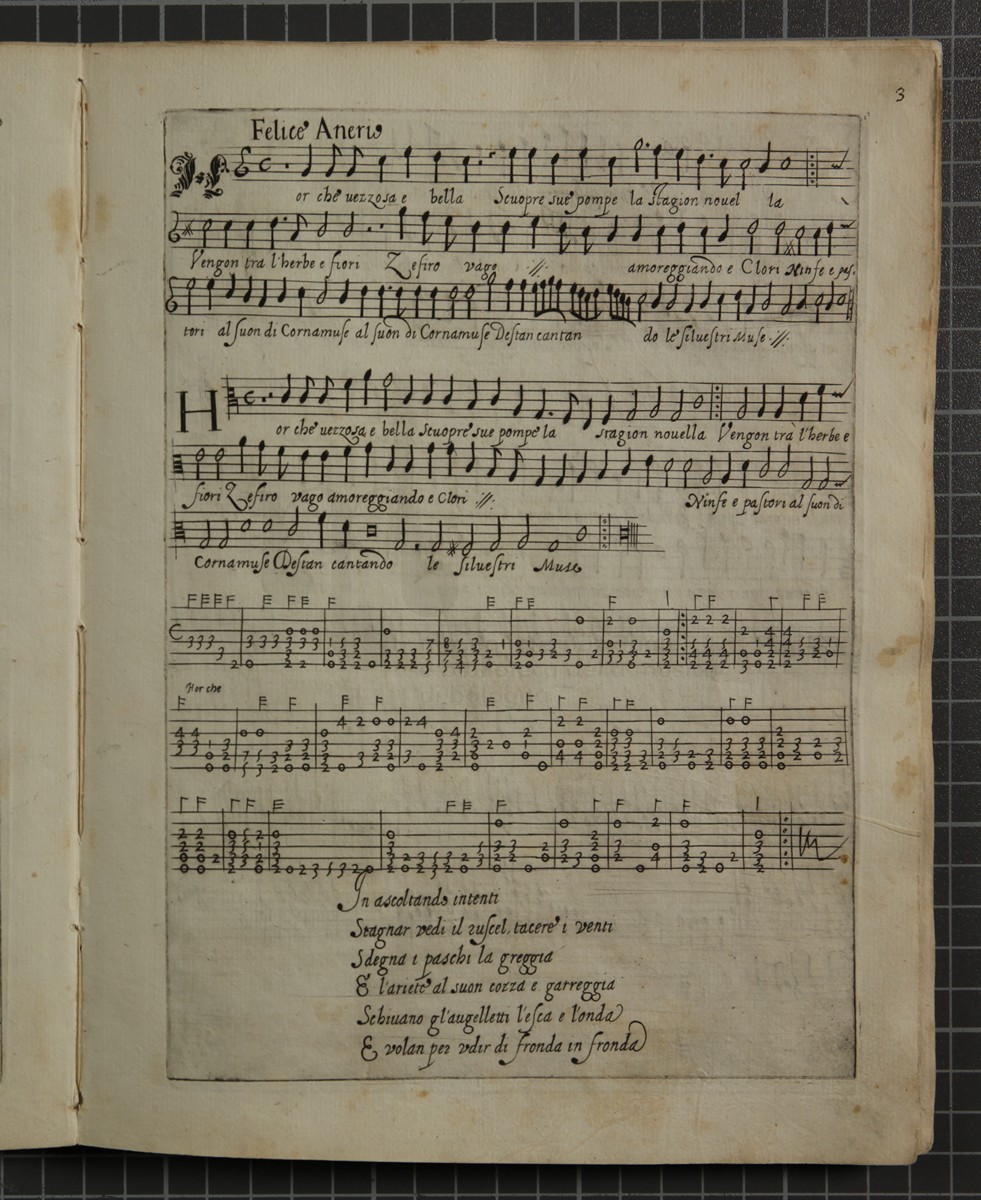 3
Felice Anerio
H or che uezzosa e bella Scuopre sue pompe la stagion nouel la
Vengon tra l'herbe e fiori Zefiro vago :// : amoreggiando e Clori Ninfe e pas-
tori al suon di Cornamuse al suon di Cornamuse Destan cantan do le siluestri Muse ://:
H or che uezzosa e bella scuopre sue pompe la stagion nouella Vengon trà l'herbe e
fiori Zefiro vago amoreggiando e Clori ://: Ninfe e pastori al suon di
Cornamuse Destan cantando le siluestri Muse
Hor che
In ascoltando intenti
Stagnar vedi il ruscel, tacere i venti
Sdegna i paschi la greggia
E l'ariete al suon cozza e garreggia
Schiuano gl'augelletti l'esca e l'onda
E volan per vdir di fronda in fronda